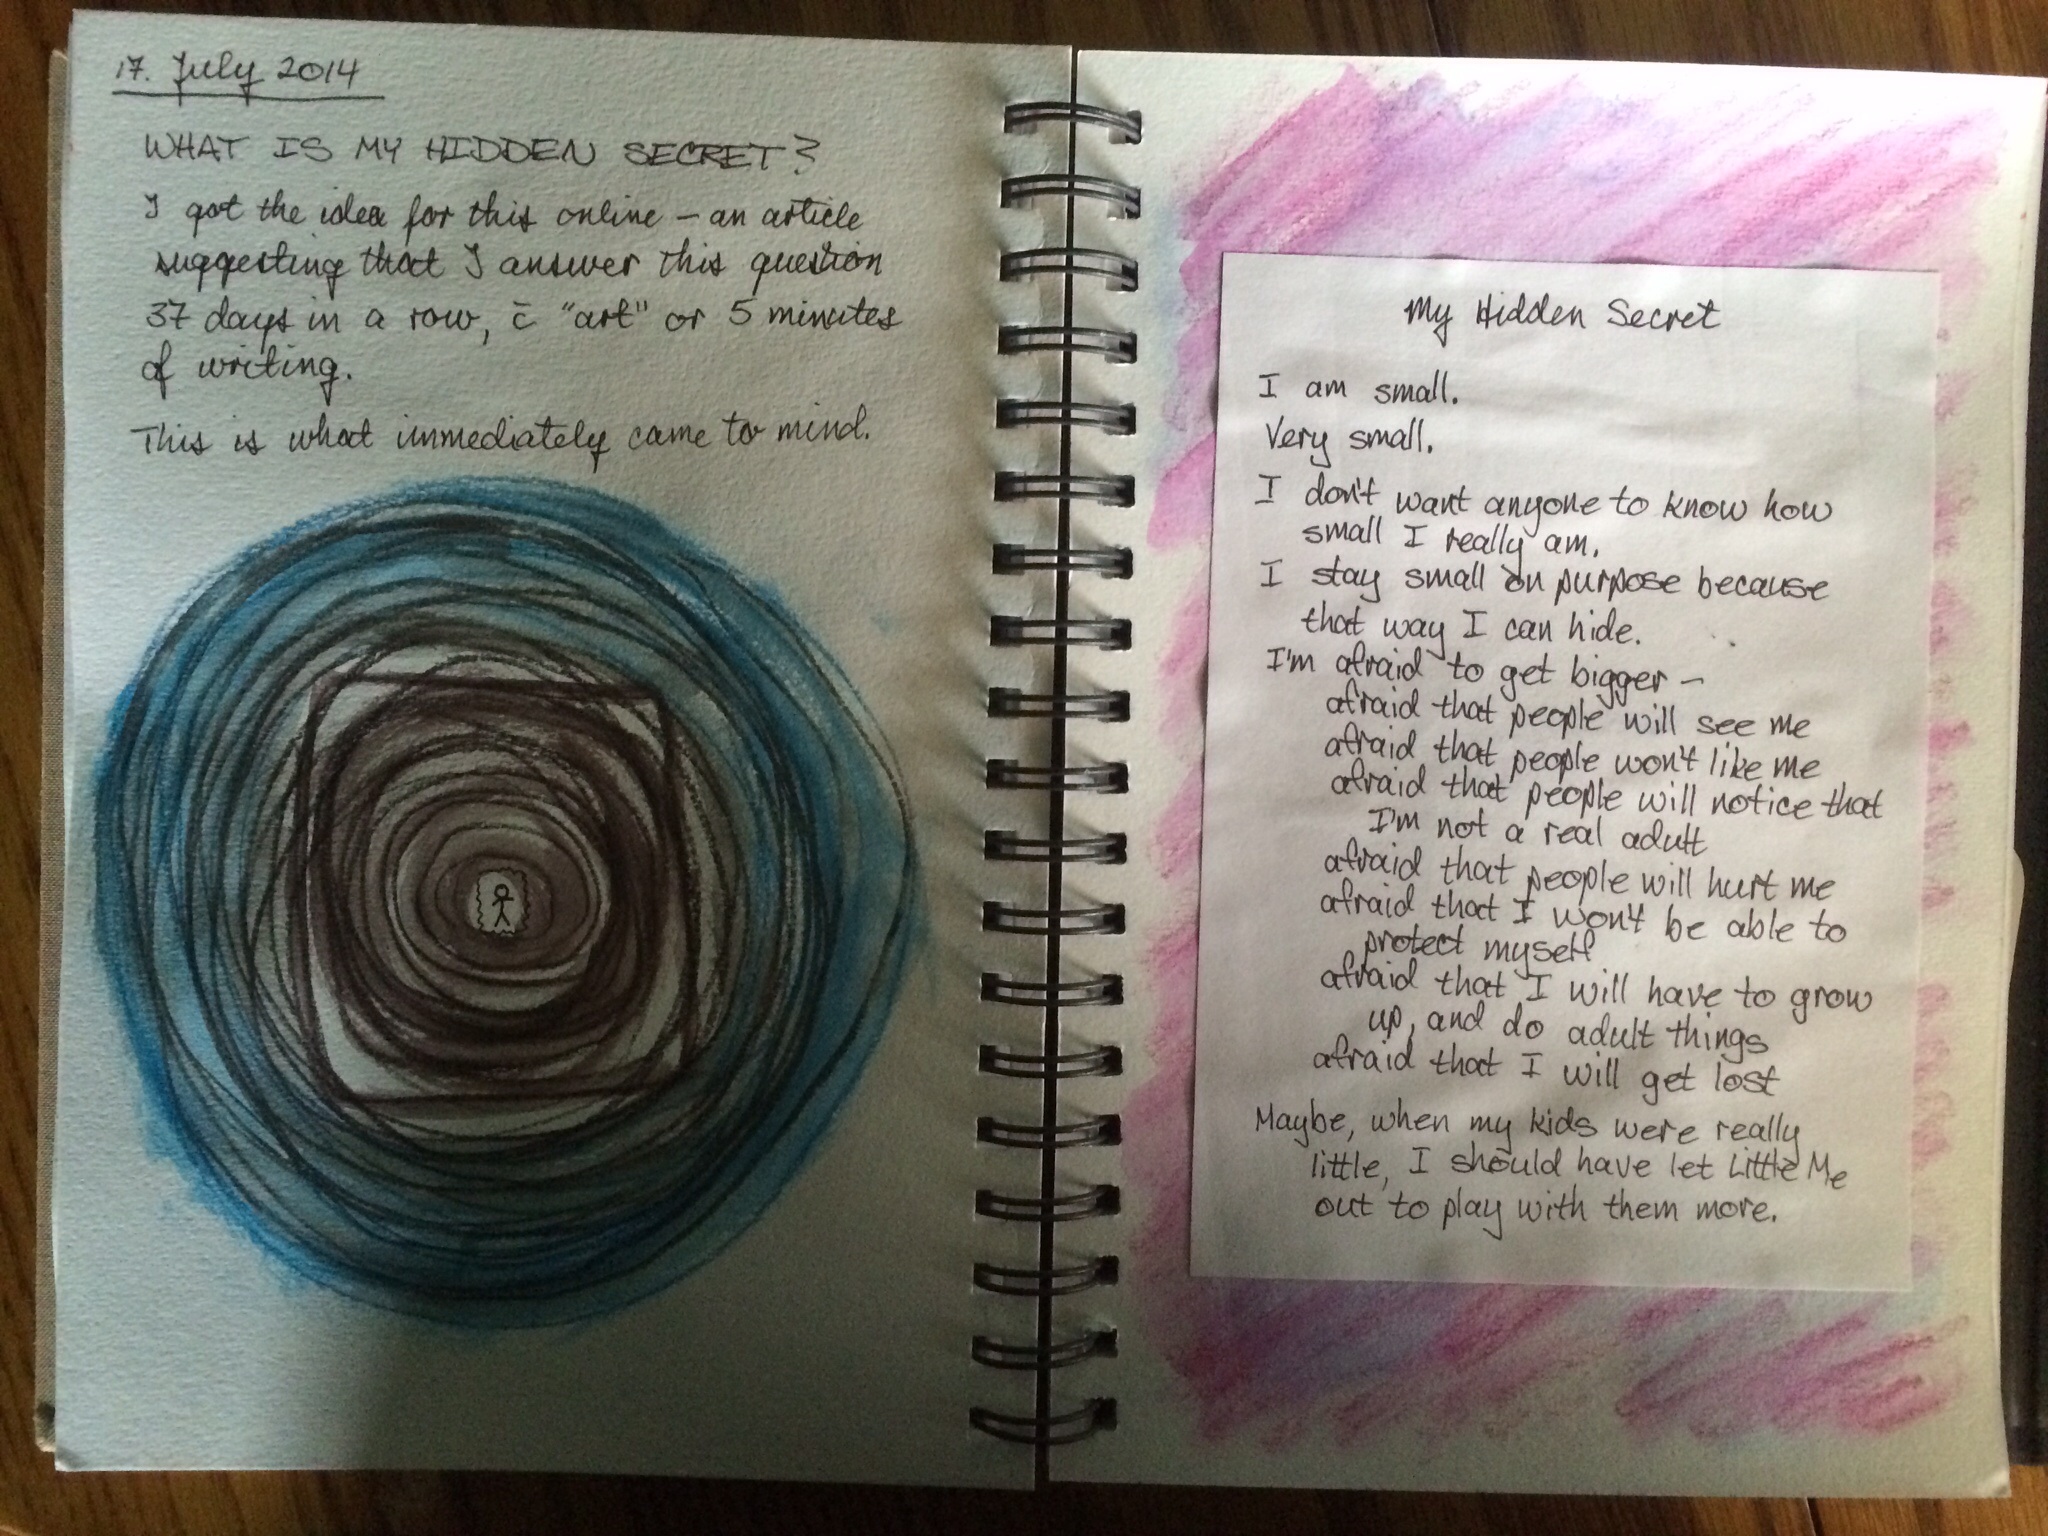 17. July 2014
WHAT IS MY HIDDEN SECRET?
I got the idea for this online – an article
suggesting that I answer this question
37 days in a row, c̄ "art" or 5 minutes
of writing.
This is what immediately came to mind.
My Hidden Secret
I am small.
Very small.
I don't want anyone to know how
small I really am.
I stay small on purpose because
that way I can hide.
I'm afraid to get bigger –
afraid that people will see me
afraid that people won't like me
afraid that people will notice that
I'm not a real adult
afraid that people will hurt me
afraid that I won't be able to
protect myself
afraid that I will have to grow
up, and do adult things
afraid that I will get lost
Maybe, when my kids were really
little, I should have let Little Me
out to play with them more.